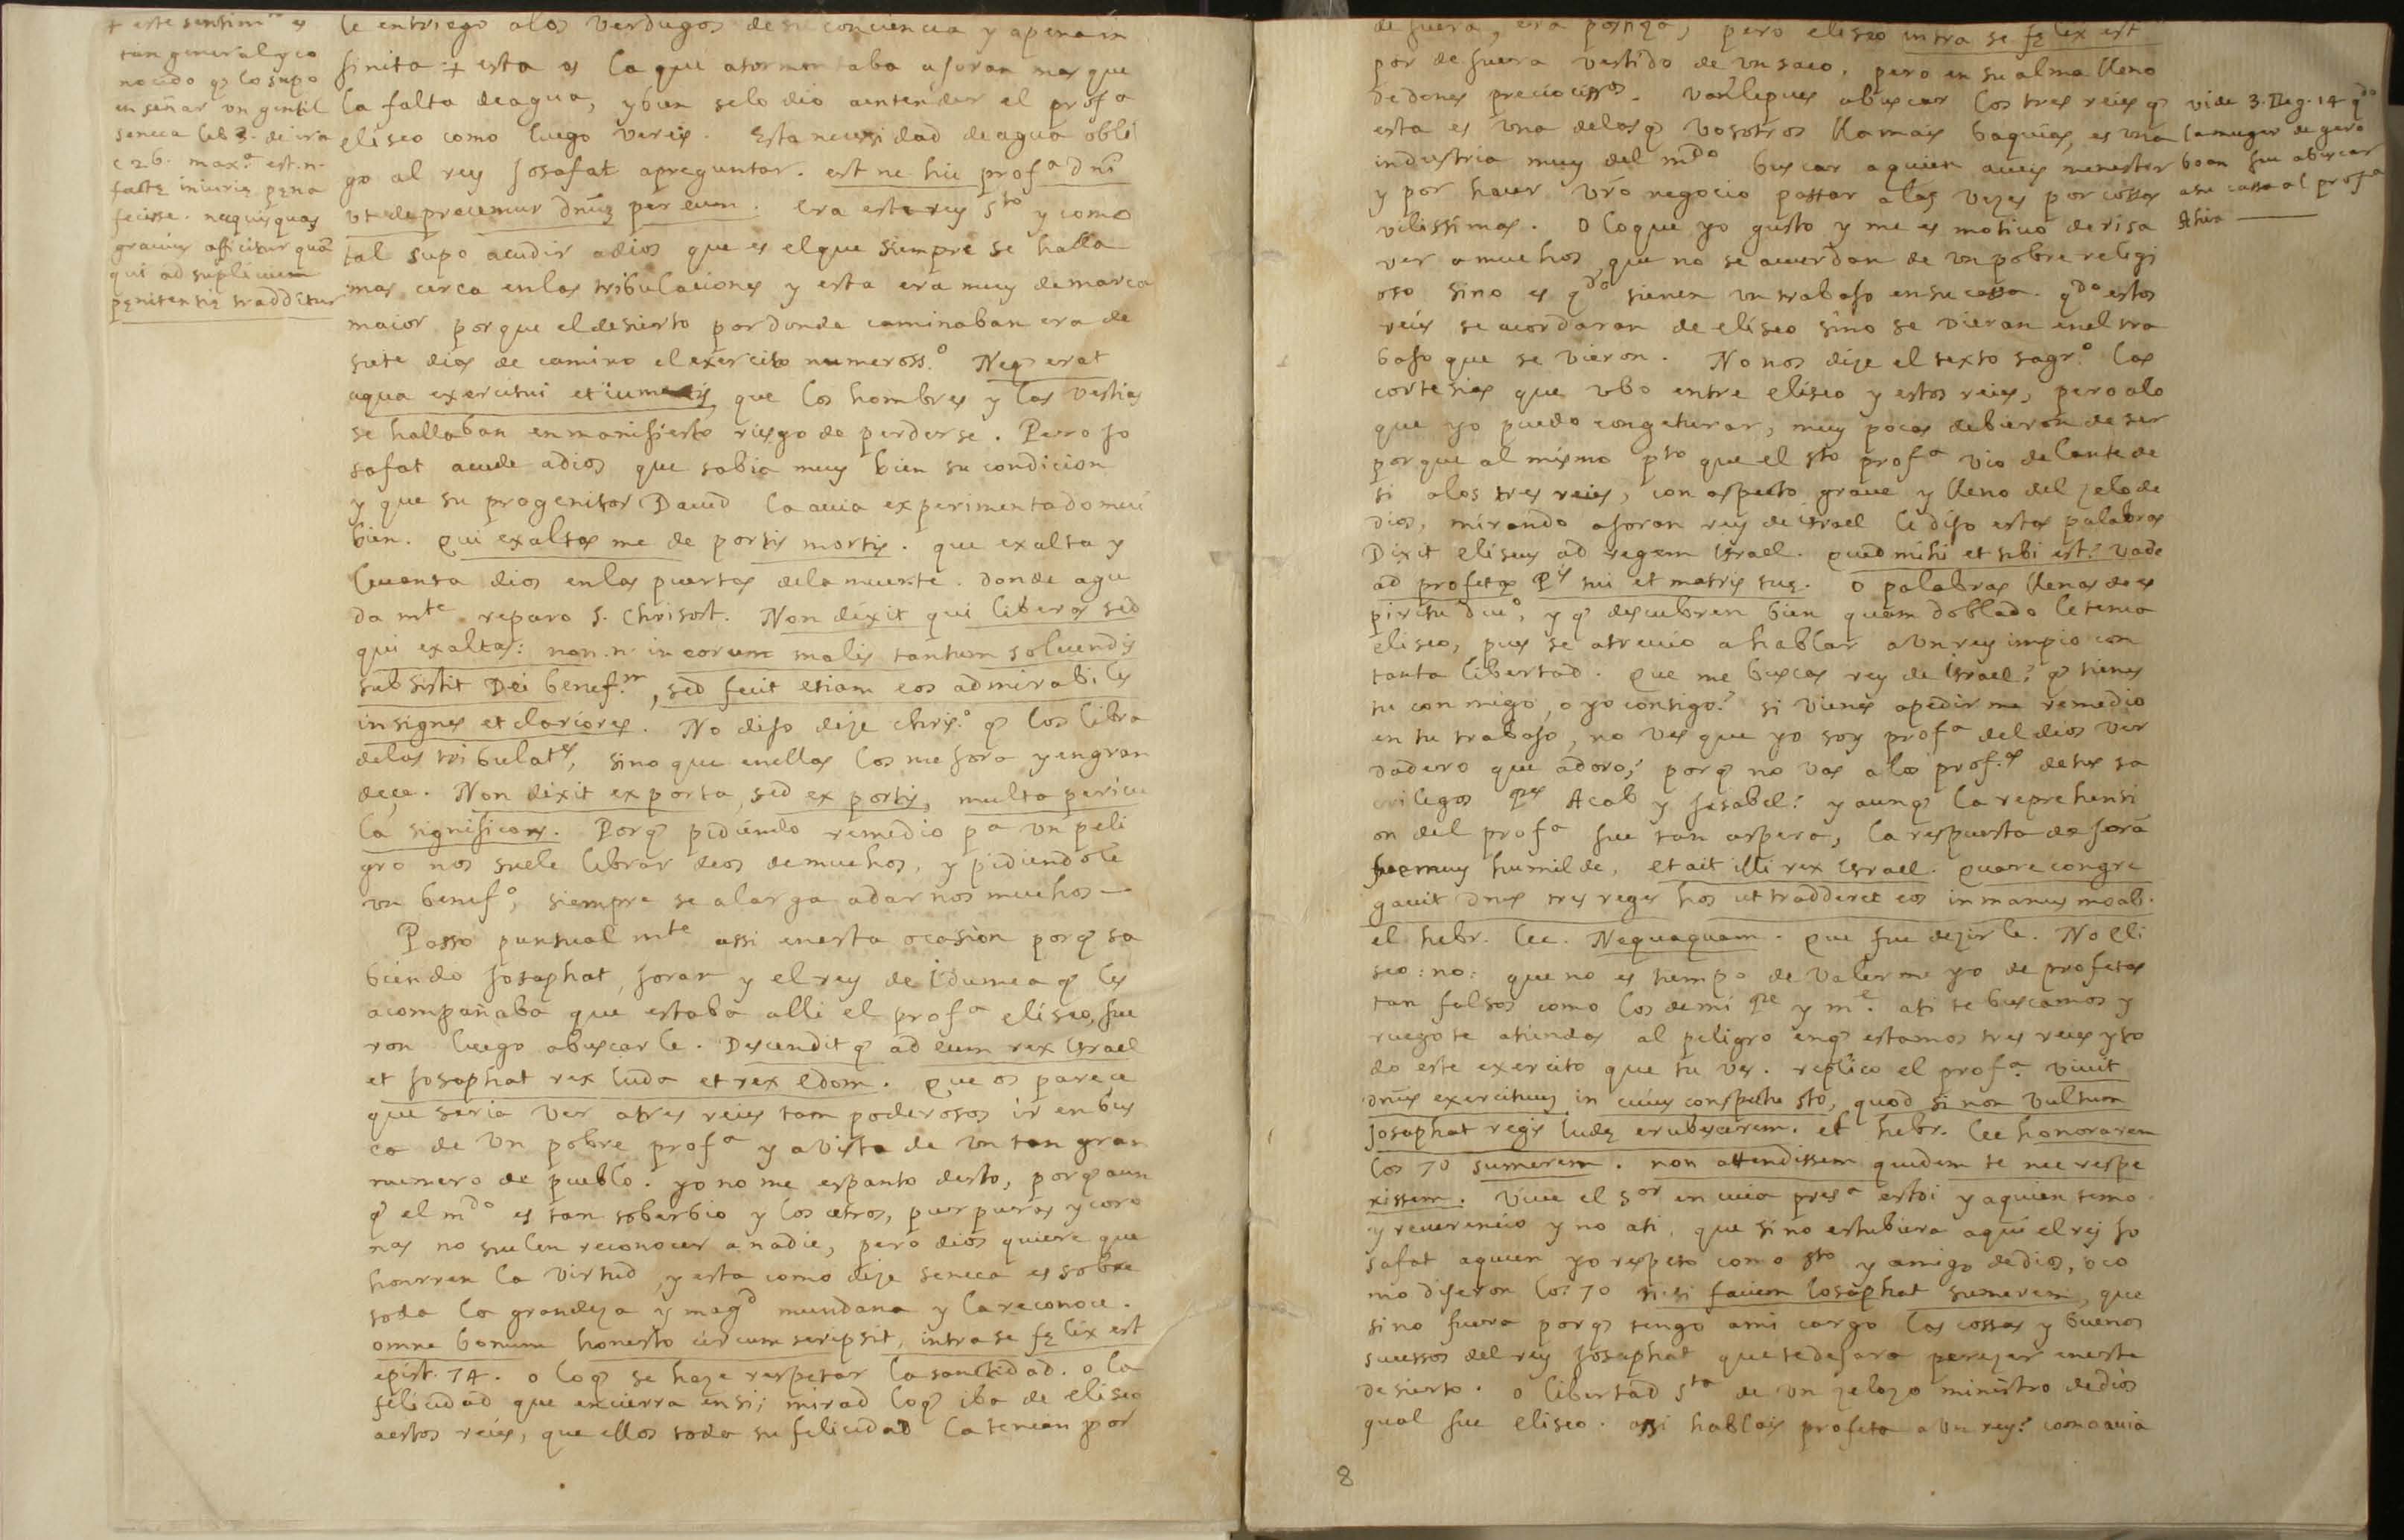 + este sentim.to es
tan general y co
nocido q̃ lo supo
enseñar un gentil
seneca lib 3. de ira
c 26. max.a est. n.
factę iniurię pęna
fecisse. nec quisquas
grauius afficitur quã
qui ad suplicium
pęnitentię tradditur
le entriego alos verdugos de su conciencia y a pena in
finita + esta es la que atormentaba a Joran mas que
la falta de agua, y bien se lo dio aentender el prof.a
eliseo como luego vereis. Esta necessidad de agua obli
go al rey Josafat apreguntar. est ne hic prof.a dnĩ
vt deprecemur dnũȝ per eum. Era este rey s.to y como
tal supo acudir adios que es elque siempre se halla
mas cerca enlas tribulaciones y esta era muy demarca
maior porque el desierto por donde caminaban era de
siete dias de camino el exercito numeross.o Neq̃ erat
aqua exercitui et iumentis que los hombres y las vestias
se hallaban en manifiesto riesgo de perderse. Pero Jo
safat acude adios que sabia muy bien su condicion
y que su progenitor Dauid la auia experimentado mui
bien. Qui exaltas me de portis mortis. que exalta y
leuanta dios enlas puertas dela muerte. donde agu
da m.te reparo S. Chrisost. Non dixit qui liberas sed
qui exaltas: non .n. in eorum malis tantum soluendis
subsistit Dei benef.m, sed fecit etiam eos admirabiles
insignes et clariores. No dijo dize chris.o q̃ los libra
delas tribulat.es, sino que enellas los mejora y engran
deçe. Non dixit ex porta, sed ex portis, multa pericu
la significans. Porq̃ pidiendo remedio p.a un peli
gro nos suele librar dios demuchos, y pidiendole
un benef.o, siempre se alarga adarnos muchos —
Passo puntual m.te assi enesta ocasion porq̃ sa
biendo Josaphat, Joran y el rey de Idumea q̃ les
acompañaba que estaba alli el prof.a eliseo, fue
ron luego abuscarle. Descenditq̃ ad eum rex Israel
et Josaphat rex Iuda et rex Edom. Que os parece
que seria ver atres reies tam poderosos ir en bus
ca de Un pobre prof.a y avista de Un tan gran
numero de pueblo. yo no me espanto desto, porq̃ aun
q̃ el m.do es tan soberbio y los cetros, purpuras y coro
nas no suelen reconocer a nadie, pero dios quiere que
honrren la virtud, y esta como dize seneca es sobre
toda la grandeza y mag.d mundana y la reconoce.
omne bonum honesto circumscripsit, intra se fęlix est
epist. 74. o loq̃ se haze respetar la sanctidad. o la
felicidad que encierra ensi; mirad loq̃ iba de eliseo
aestos reies, que ellos toda su felicidad la tenian por
de fuera, era postiza, pero eliseo intra se fęlix est
por de fuera vestido de Un saco, pero en su alma lleno
dedones preciociss.os. Van le pues abuscar los tres reies q̃
esta es una delas q̃ vosotros llamais baquias, es una
industria muy del m.do buscar aquien aueis menester
y por hacer vr̃o negocio passar alas vezes por cossas
vilissimas. O loque yo gusto y me es motiuo de risa
ver amuchos que no se acuerdan de un pobre religi
oso sino es q.do tienen un trabajo en su cassa. q.do estos
reies se acordaran de eliseo sino se vieran enel tra
bajo que se vieron. No nos dize el texto sagr.o las
cortesias que ubo entre eliseo y estos reies, pero alo
que yo puedo congeturar, muy pocas debieron de ser
porque al mismo p.to que el s.to prof.a vio delante de
si alos tres reies, con aspecto graue y lleno del zelo de
dios, mirando aJoran rey de israel le dijo estas palabras
Dixit eliseus ad regem Israel. Quid mihi et tibi est? vade
ad profetas P.is tui et matris tuę. o palabras llenas de es
piritu diu.o, y q̃ descubren bien quam doblado le tenia
eliseo, pues se atreuio a hablar aUn rey impio con
tanta libertad. Que me buscas rey de Israel? q̃ tienes
tu con migo, o yo contigo? si vienes apedir me remedio
en tu trabajo, no ves que yo soy prof.a del dios ver
dadero que adoro? porq̃ no vas alos prof.as de tus sa
crilegos p.es Acab y Jesabel? y aunq̃ la reprehensi
on del prof.a fue tan aspera, la respuesta de Jorã
fue muy humilde, et ait illi rex Israel. Quare congre
gauit dn̄s tres reges hos ut tradderet eos in manus moab.
el hebr. lee. Nequaquam. Que fue dezirle. No Eli
seo: no: que no es tiempo de valerme yo de profetas
tan falsos como los de mi p.e y m.e. ati te buscamos y
ruegote atiendas al peligro enq̃ estamos tres reies y to
do este exercito que tu ves. replico el prof.a. viuit
dn̄s exercituuȝ in cuius conspectu sto, quod si non vultum
Josaphat regis Iudę erubescerem. el hebr. lee honorarem
los 70 sumerem. non attendissem quidem te nec respe
xissem. Viue el s.or en cuia pres.a estoi y aquien temo
y reuerencio y no ati, que si no estubiera aqui el rej Jo
safat aquien yo respeto como s.to y amigo dedios, o co
mo dijeron los 70 n. si faciem Iosaphat sumerem, que
si no fuera porq̃ tengo ami cargo las cossas y buenos
sucessos del rey Josaphat que te dejara perezer eneste
desierto. o libertad s.ta de un zelozo ministro dedios
qual fue eliseo. assi hablais profeta aUn rey? como auia
vide 3. Reg. 14 q.do
la muger de gero
boan fue abuscar
asu cassa al prof.a
Ahia —
8